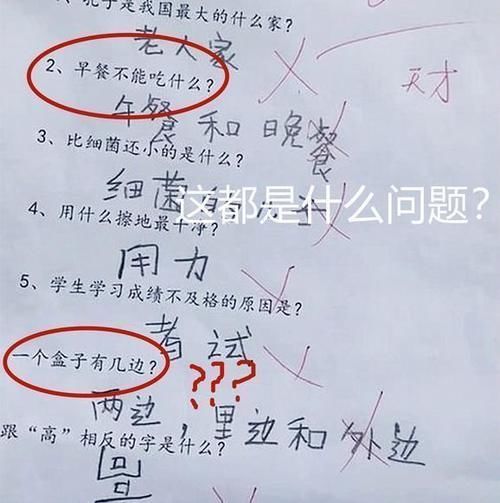 、孔子是我国最大的什么家?
老人家
2、早餐不能吃什么?
天才
午餐和晚餐
3、比细菌还小的是什么?
细菌的儿子
这都是什么问题?
4、用什么擦地最干净?
用力
5、学生学习成绩不及格的原因是?
考试
一个盒子有几边?
???
两边,里边和外边
跟“高”相反的字是什么?